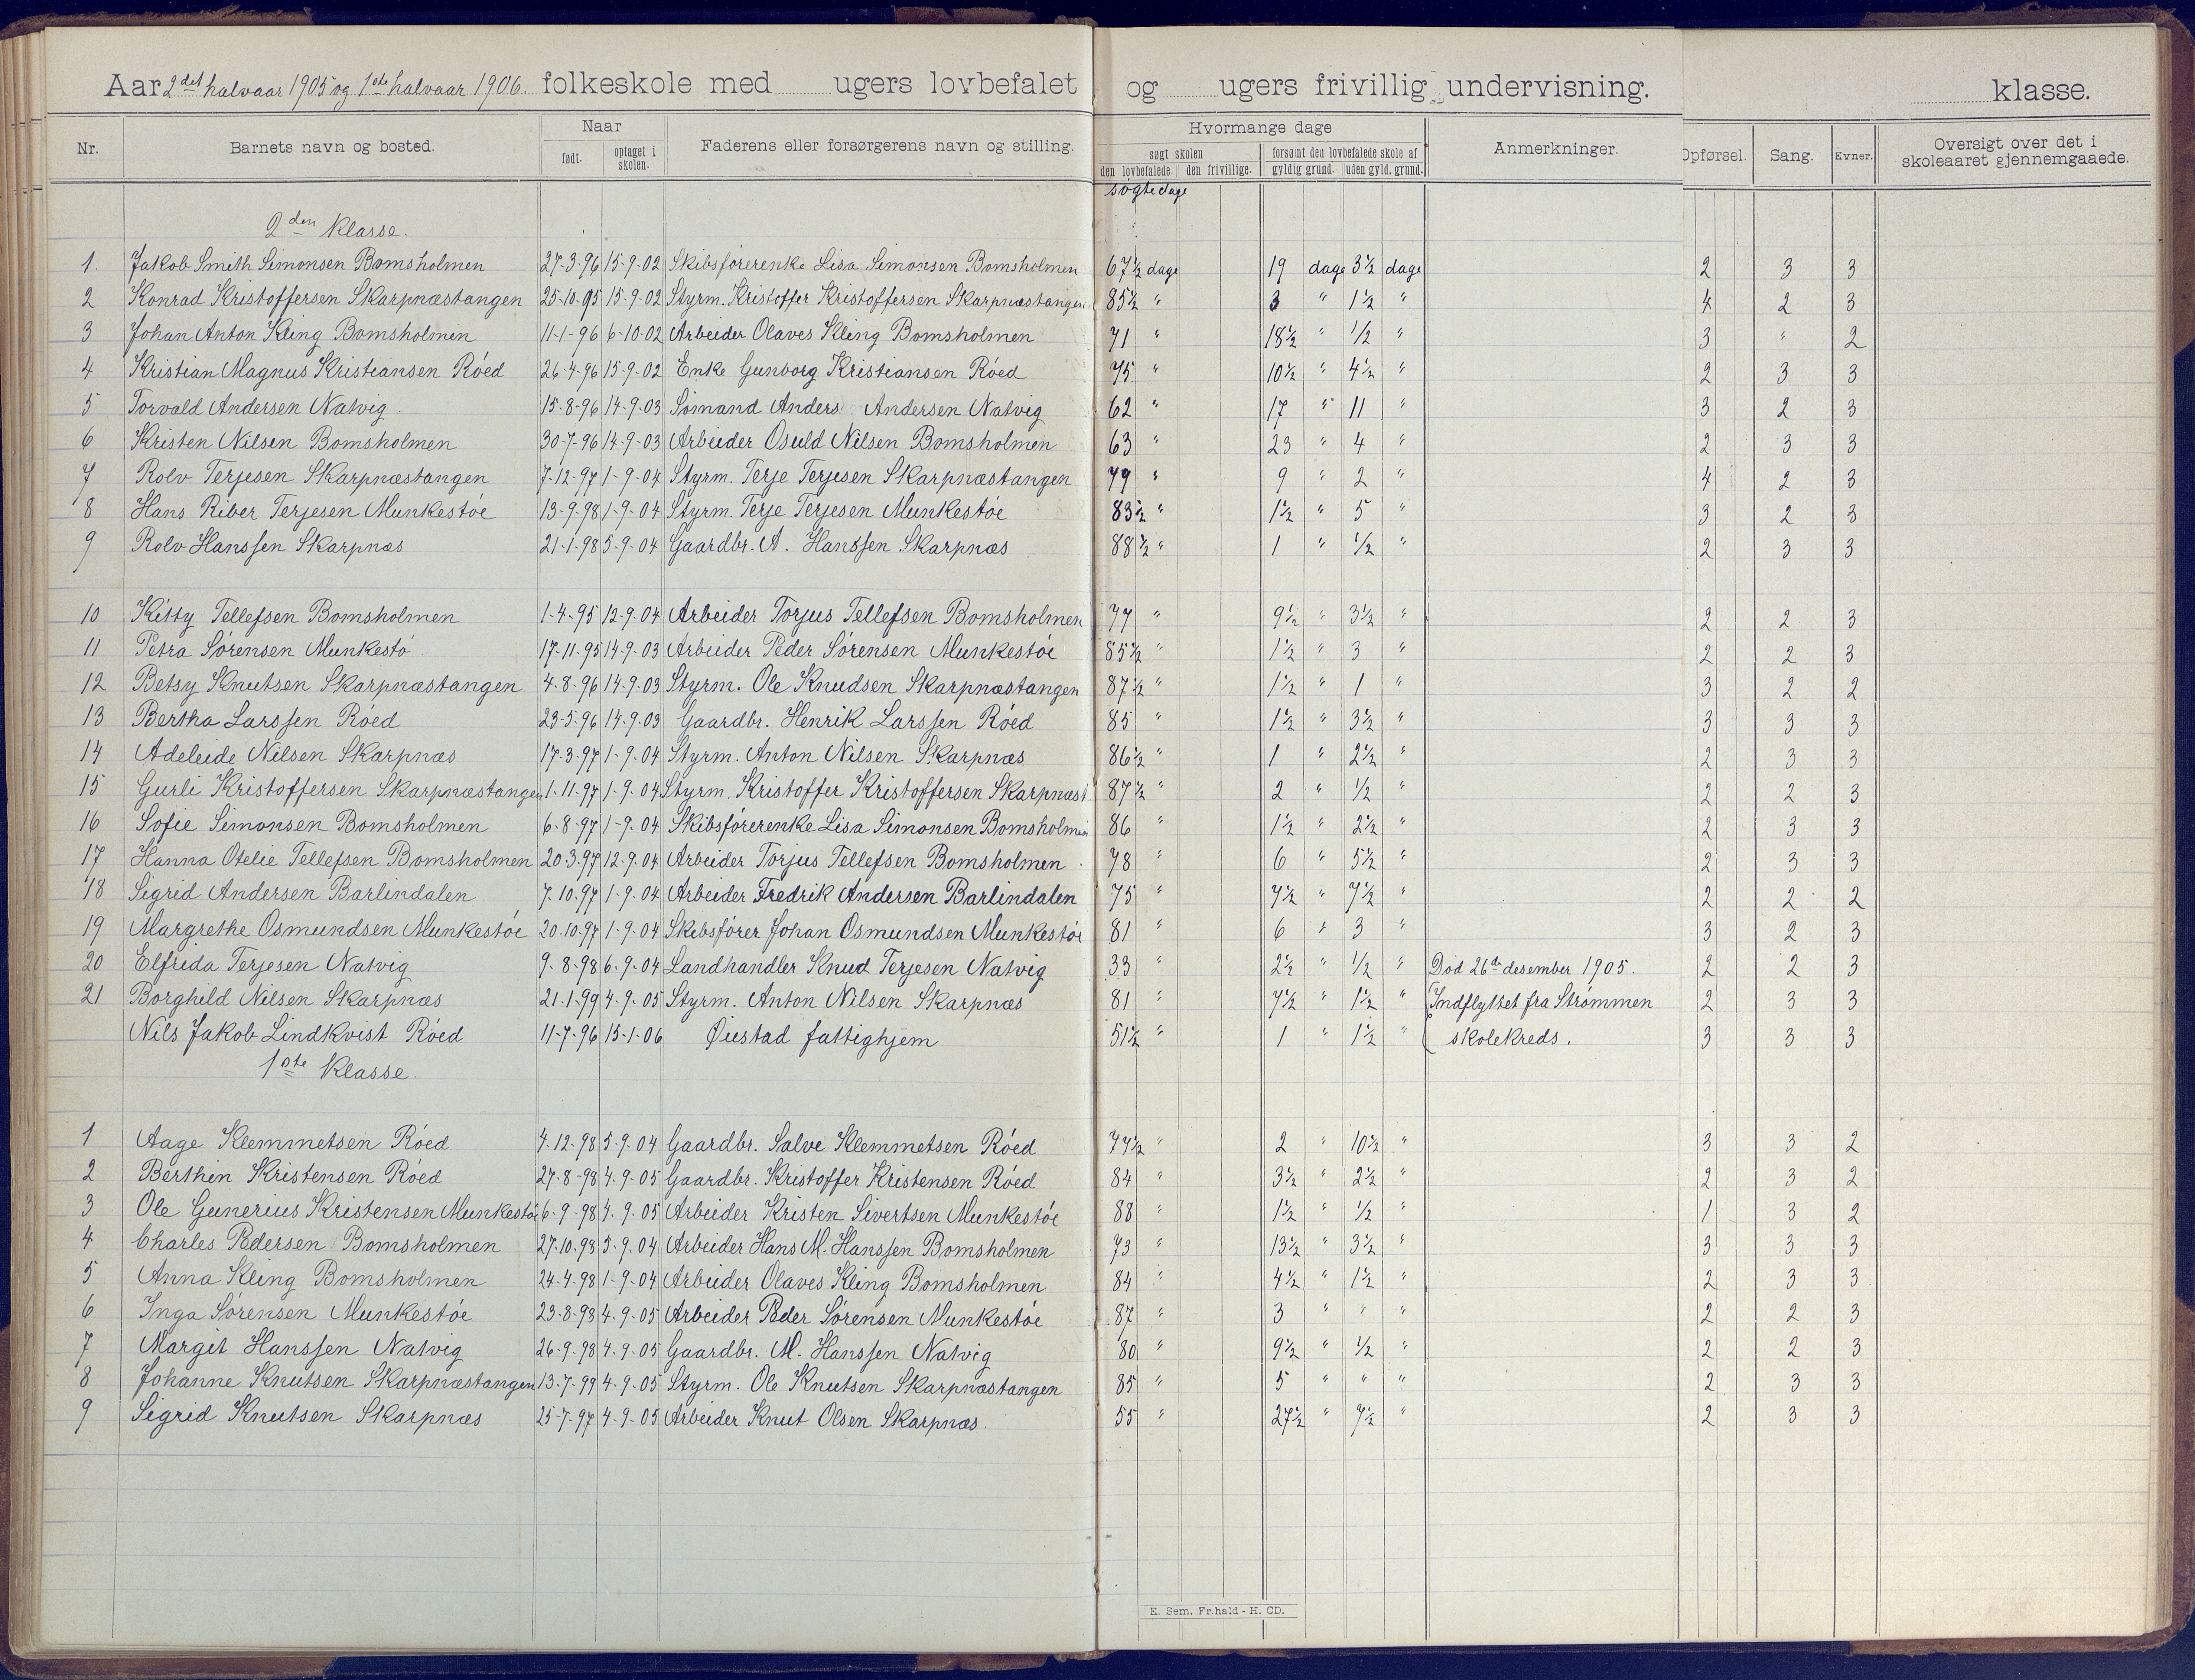 Aar 2det halvaar 1905 og 1ste halvaar 1906. folkeskole med ugers lovbefalet og ugers frivillig undervisning. klasse.
Nr. Barnets navn og bosted. Naar født. optaget i skolen. Faderens eller forsørgerens navn og stilling. Hvormange dage søgt skolen den lovbefalede. den frivillige. forsømt den lovbefalede skole af gyldig grund. uden gyld. grund. Anmerkninger. Opførsel. Sang. Evner. Oversigt over det i skoleaaret gjennemgaaede.
søgte dage
2den Klasse.
1. Jakob Smith Simonsen Bomsholmen 27-3-96 15-9-02 Skibsførerenke Lisa Simonsen Bomsholmen 67½ dage 19 dage 3½ dage 2 3 3
2 Konrad Kristoffersen Skarpnæstangen 25-10-95 15-9-02 Styrm. Kristoffer Kristoffersen Skarpnæstangen 85½ " 3 " 1½ " 4 2 3
3 Johan Anton Kling Bomsholmen 11-1-96 6-10-02 Arbeider Olaves Kling Bomsholmen 71 " 18½ " ½ " 3 " 2
4 Kristian Magnus Kristiansen Røed 26-4-96 15-9-02 Enke Gunborg Kristiansen Røed 75 " 10½ " 4½ " 2 3 3
5 Torvald Andersen Natvig 15-8-96 14-9-03 Sømand Anders Andersen Natvig 62 " 17 " 11 " 3 2 3
6 Kristen Nilsen Bomsholmen 30-7-96 14-9-03 Arbeider Osuld Nilsen Bomsholmen 63 " 23 " 4 " 2 3 3
7 Rolv Terjesen Skarpnæstangen 7-12-97 1-9-04 Styrm. Terje Terjesen Skarpnæstangen 79 " 9 " 2 " 4 2 3
8 Hans Riber Terjesen Munkestøe 13-9-98 1-9-04 Styrm. Terje Terjesen Munkestøe 83½ " 1½ " 5 " 3 2 3
9 Rolv Hanssen Skarpnæs 21-1-98 5-9-04 Gaardbr. A. Hanssen Skarpnæs 88½ " 1 " ½ " 2 3 3
10 Kitty Tellefsen Bomsholmen 1-4-95 12-9-04 Arbeider Torjus Tellefsen Bomsholmen 77 " 9½ " 3½ " 2 2 3
11 Petra Sørensen Munkestø 17-11-95 14-9-03 Arbeider Peder Sørensen Munkestøe 85½ " 1½ " 3 " 2 2 3
12 Betsy Knutsen Skarpnæstangen 4-8-96 14-9-03 Styrm. Ole Knudsen Skarpnæstangen 87½ " 1½ " 1 " 3 2 2
13 Bertha Larssen Røed 23-5-96 14-9-03 Gaardbr. Henrik Larssen Røed 85 " 1½ " 3½ " 3 3 3
14 Adeleide Nilsen Skarpnæs 17-3-97 1-9-04 Styrm. Anton Nilsen Skarpnæs 86½ " 1 " 2½ " 2 3 3
15 Gurli Kristoffersen Skarpnæstangen 1-11-97 1-9-04 Styrm. Kristoffer Kristoffersen Skarpnæst 87½ " 2 " ½ " 2 2 3
16 Sofie Simonsen Bomsholmen 6-8-97 1-9-04 Skibsførerenke Lisa Simonsen Bomsholmen 86 " 1½ " 2½ " 2 3 3
17 Hanna Otelie Tellefsen Bomsholmen 20-3-97 12-9-04 Arbeider Torjus Tellefsen Bomsholmen 78 " 6 " 5½ " 2 3 3
18 Sigrid Andersen Barlindalen 7-10-97 1-9-04 Arbeider Fredrik Andersen Barlindalen 75 " 7½ " 7½ " 2 2 2
19 Margrethe Osmundsen Munkestøe 20-10-97 1-9-04 Skibsfører Johan Osmundsen Munkestøe 81 " 6 " 3 " 3 2 3
20 Elfrida Terjesen Natvig 9-8-98 6-9-04 Landhandler Knud Terjesen Natvig 33 " 2½ " ½ " Død 26de desember 1905. 2 2 3
21 Borghild Nilsen Skarpnæs 21-1-99 4-9-05 Styrm. Anton Nilsen Skarpnæs 81 " 7½ " 1½ " Indflyttet fra Strømmen 2 3 3
Nils Jakob Lindkvist Røed 11-7-96 15-1-06 Øiestad fattighjem 51½ " 1 " 1½ " skolekreds. 3 3 3
1ste Klasse.
1 Aage Klemmetsen Røed 4-12-98 5-9-04 Gaardbr. Salve Klemmetsen Røed 77½ " 2 " 10½ " 3 3 2
2 Berthin Kristensen Røed 27-8-98 4-9-05 Gaardbr. Kristoffer Kristensen Røed 84 " 3½ " 2½ " 2 3 2
3 Ole Gunerius Kristensen Munkestøe 6-9-98 4-9-05 Arbeider Kristen Sivertsen Munkestøe 88 " 1½ " ½ " 1 3 2
4 Charles Pedersen Bomsholmen 27-10-98 5-9-04 Arbeider Hans M. Hanssen Bomsholmen 73 " 13½ " 3½ " 3 3 3
5 Anna Kling Bomsholmen 24-4-98 1-9-04 Arbeider Olaves Kling Bomsholmen 84 " 4½ " 1½ " 2 3 3
6 Inga Sørensen Munkestøe 23-8-98 4-9-05 Arbeider Peder Sørensen Munkestøe 87 " 3 " " " 2 2 3
7 Margit Hanssen Natvig 26-9-98 4-9-05 Gaardbr. M. Hanssen Natvig 80 " 9½ " ½ " 2 2 3
8 Johanne Knutsen Skarpnæstangen 13-7-99 4-9-05 Styrm. Ole Knutsen Skarpnæstangen 85 " 5 " " " 2 3 3
9 Sigrid Knutsen Skarpnæs 25-7-97 4-9-05 Arbeider Knut Olsen Skarpnæs 55 " 27½ " 7½ " 2 3 3
E. Sem. Fr.hald - H. CD.